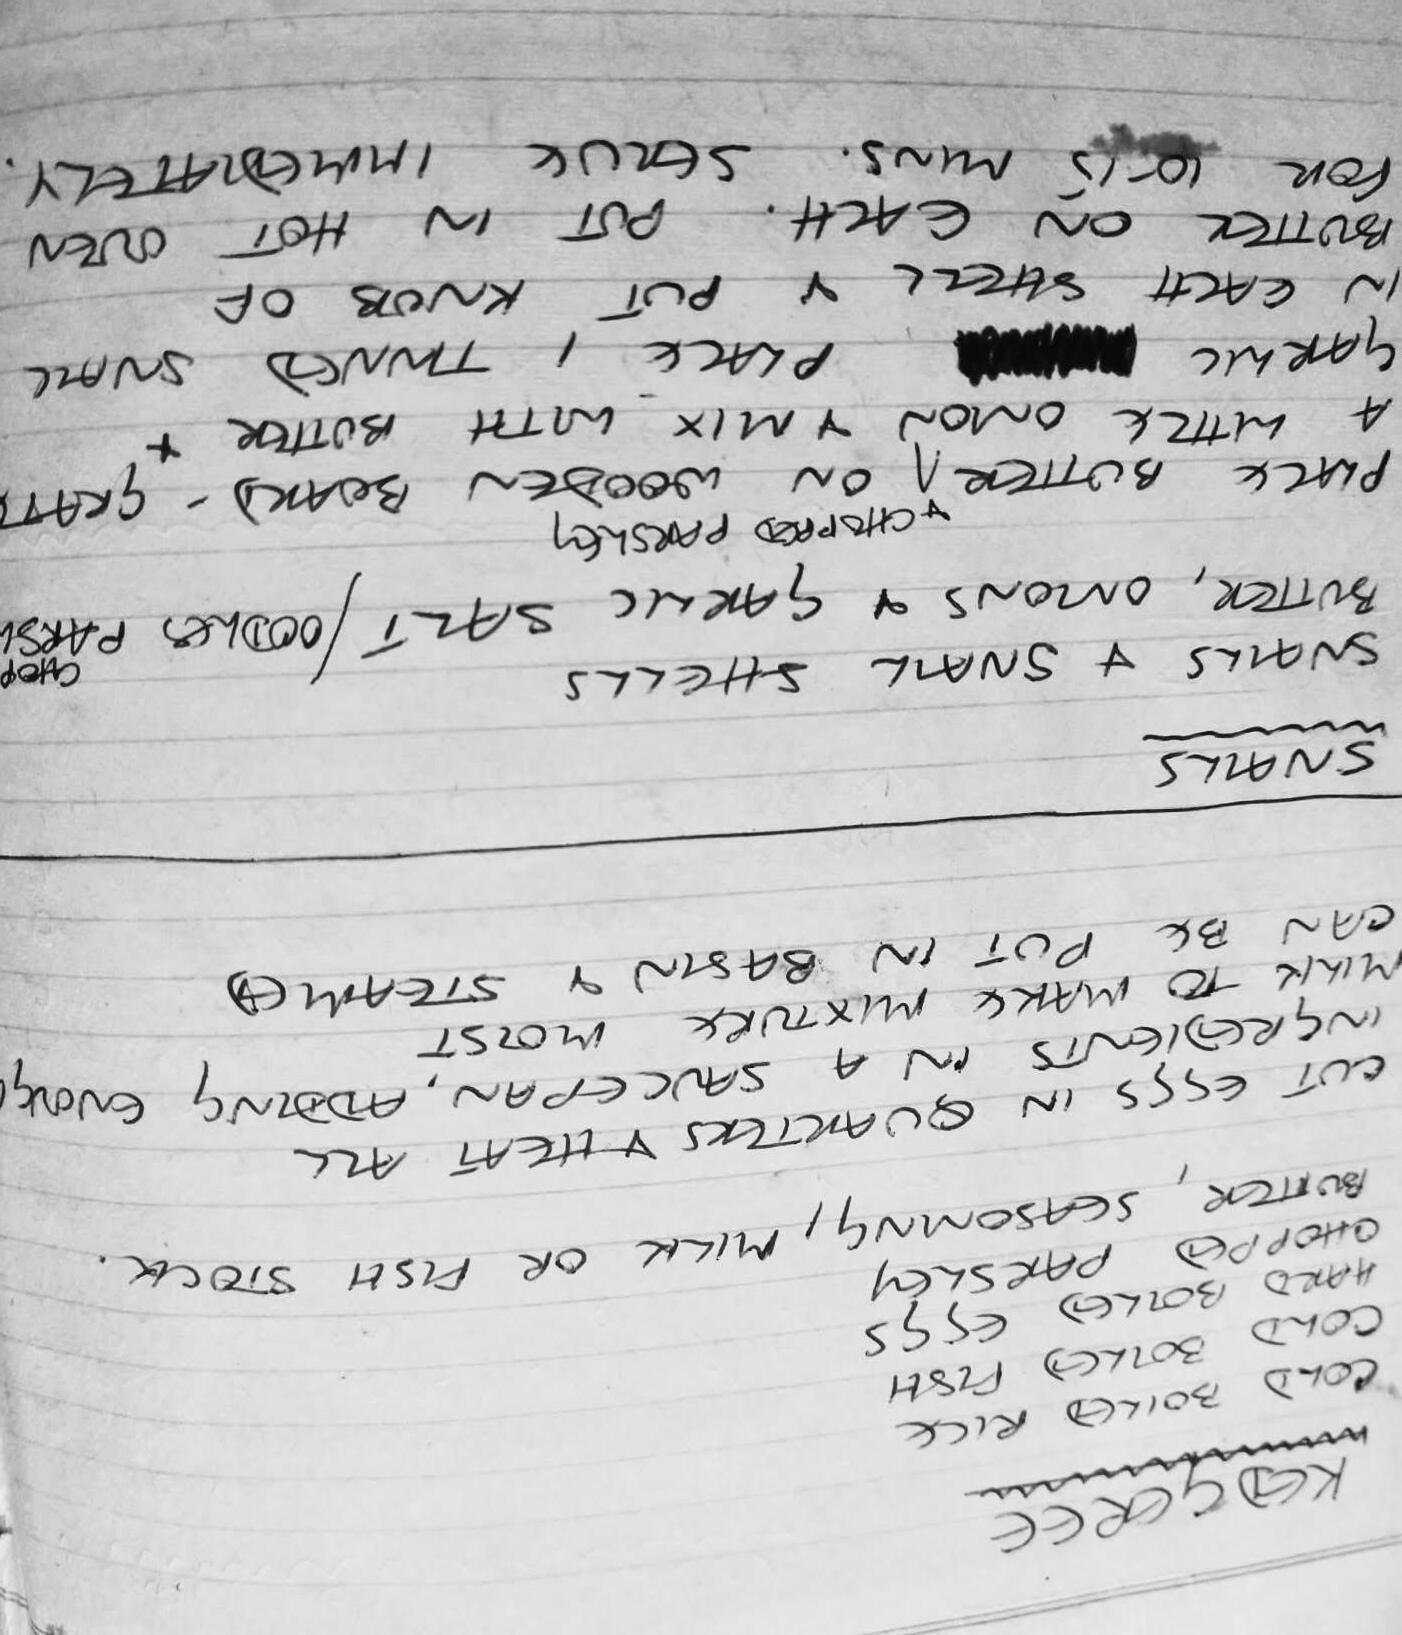 KEDGEREE
COLD BOILED RICE
COLD BOILED FISH
HARD BOILED EGGS
CHOPPED PARSLEY
BUTTER, SEASONING, MILK OR FISH STOCK.
CUT EGGS IN QUARTERS & HEAT ALL
INGREDIENTS IN A SAUCEPAN, ADDING ENOUG
MILK TO MAKE MIXTURE MOIST
CAN BE PUT IN BASIN & STEAMED
SNAILS
SNAILS & SNAIL SHELLS
CHOP
BUTTER, ONIONS & GARLIC SALT / OODLES PARSL
& CHOPPED PARSLEY
PLACE BUTTER ON WOODEN BOARD - GRATE
A LITTLE ONION & MIX WITH BUTTER &
GARLIC PLACE 1 TINNED SNAIL
IN EACH SHELL & PUT KNOB OF
BUTTER ON EACH. PUT IN HOT OVEN
FOR 10-15 MINS. SERVE IMMEDIATELY.